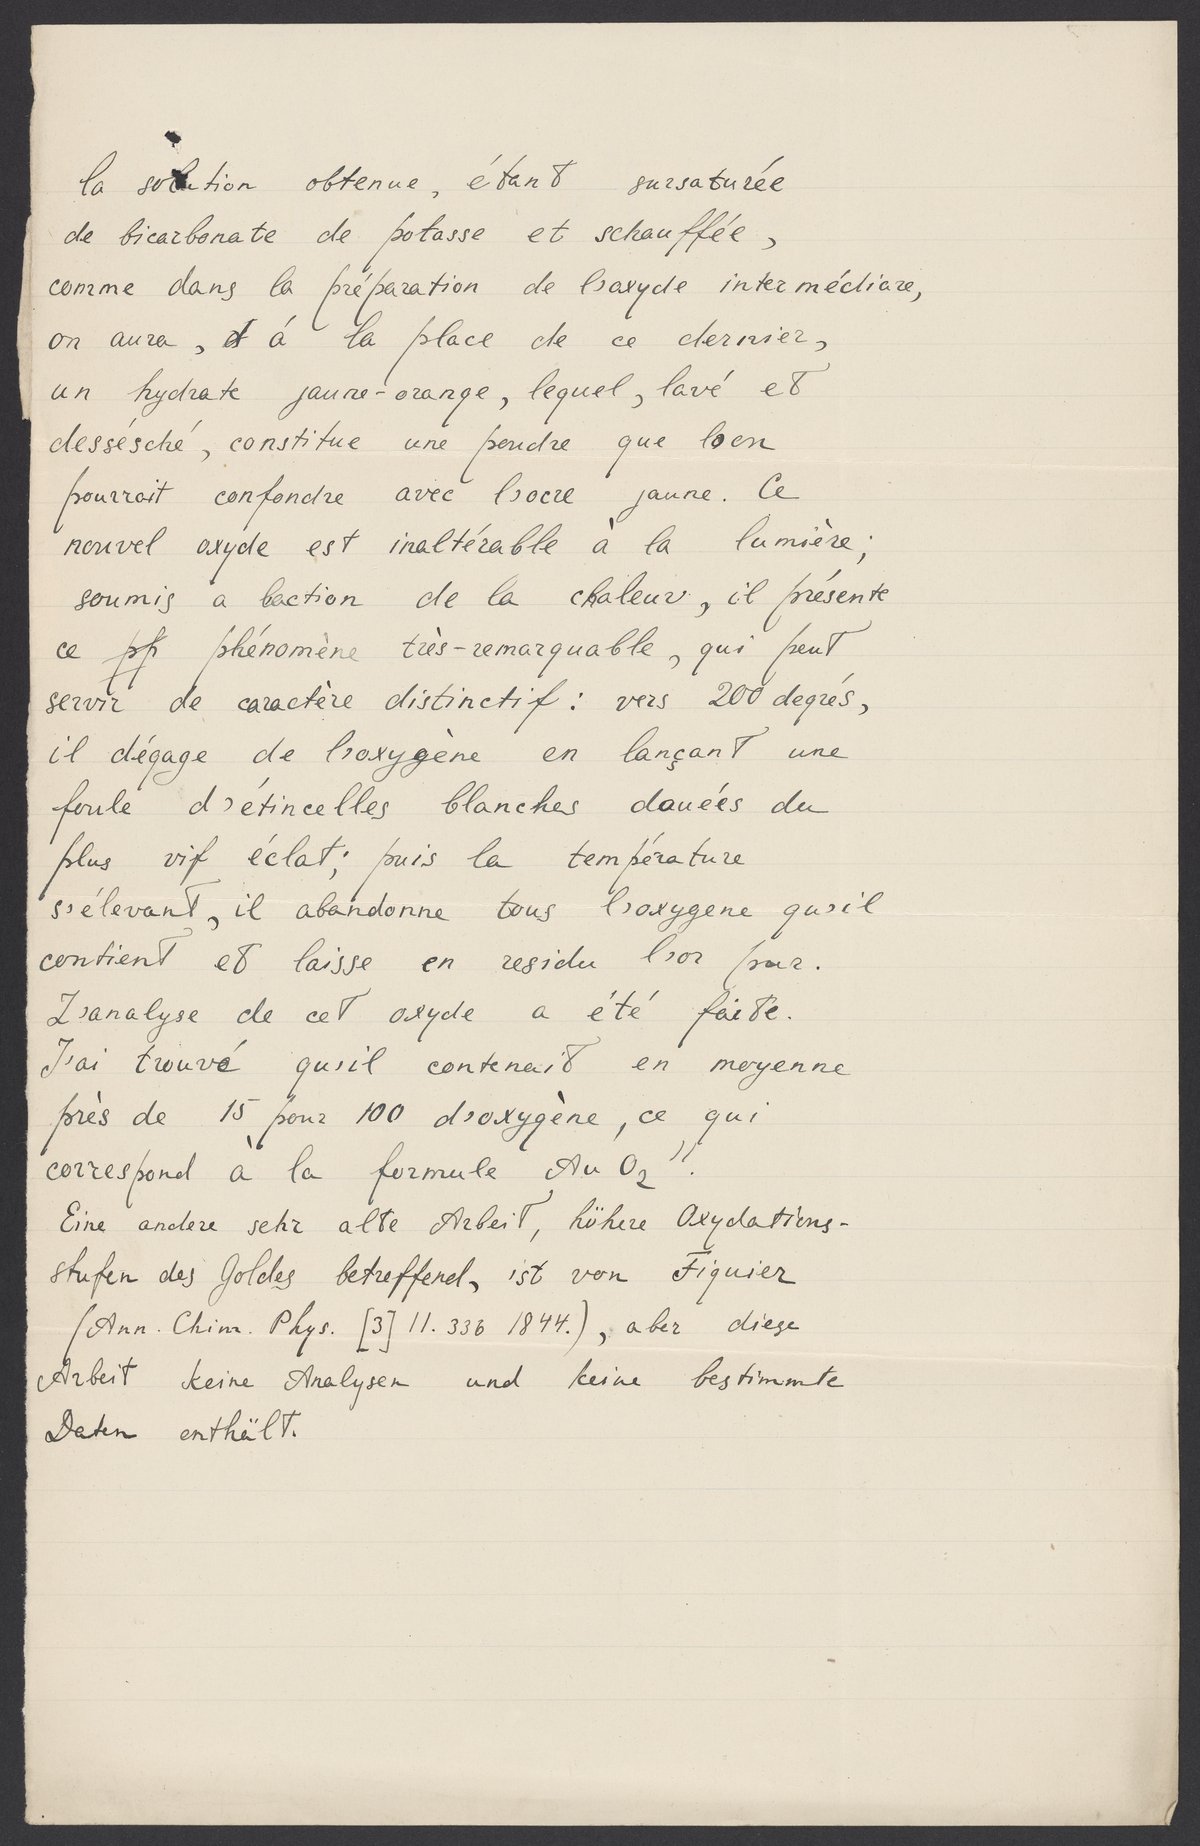 la solution obtenue, étant sursaturée
de bicarbonate de potasse et schauffée,
comme dans la préparation de l'oxyde intermédiare,
on aura, á la place de ce dernier,
un hydrate jaune-orange, lequel, lavé et
dessésché, constitue une poudre que l'on
pourrait confondre avec l'ocre jaune. Ce
nouvel oxyde est inaltérable à la lumière;
soumis a l'action de la chaleur, il présente
ce phénomène très-remarquable, qui peut
servir de caractère distinctif: vers 200 degrés,
il dégage de l'oxygène en lançant une
foule d'étincelles blanches douées du
plus vif éclat; puis la température
s'élevant, il abandonne tous l'oxygene qu'il
contient et laisse en residu l'or pur.
L'analyse de cet oxyde a été faite.
J'ai trouvé qu'il contenait en moyenne
près de 15 pour 100 d'oxygène, ce qui
correspond à la formule Au O₂".
Eine andere sehr alte Arbeit, höhere Oxydations-
stufen des Goldes betreffend, ist von Figuier
(Ann. Chim. Phys. [3] 11. 336 1844.), aber diese
Arbeit keine Analysen und keine bestimmte
Daten enthält.